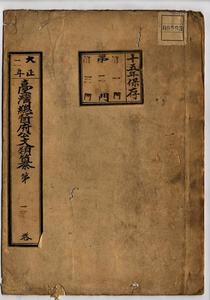 十五年保存
第二門
大正
一年
臺灣總督府公文類纂
第一卷